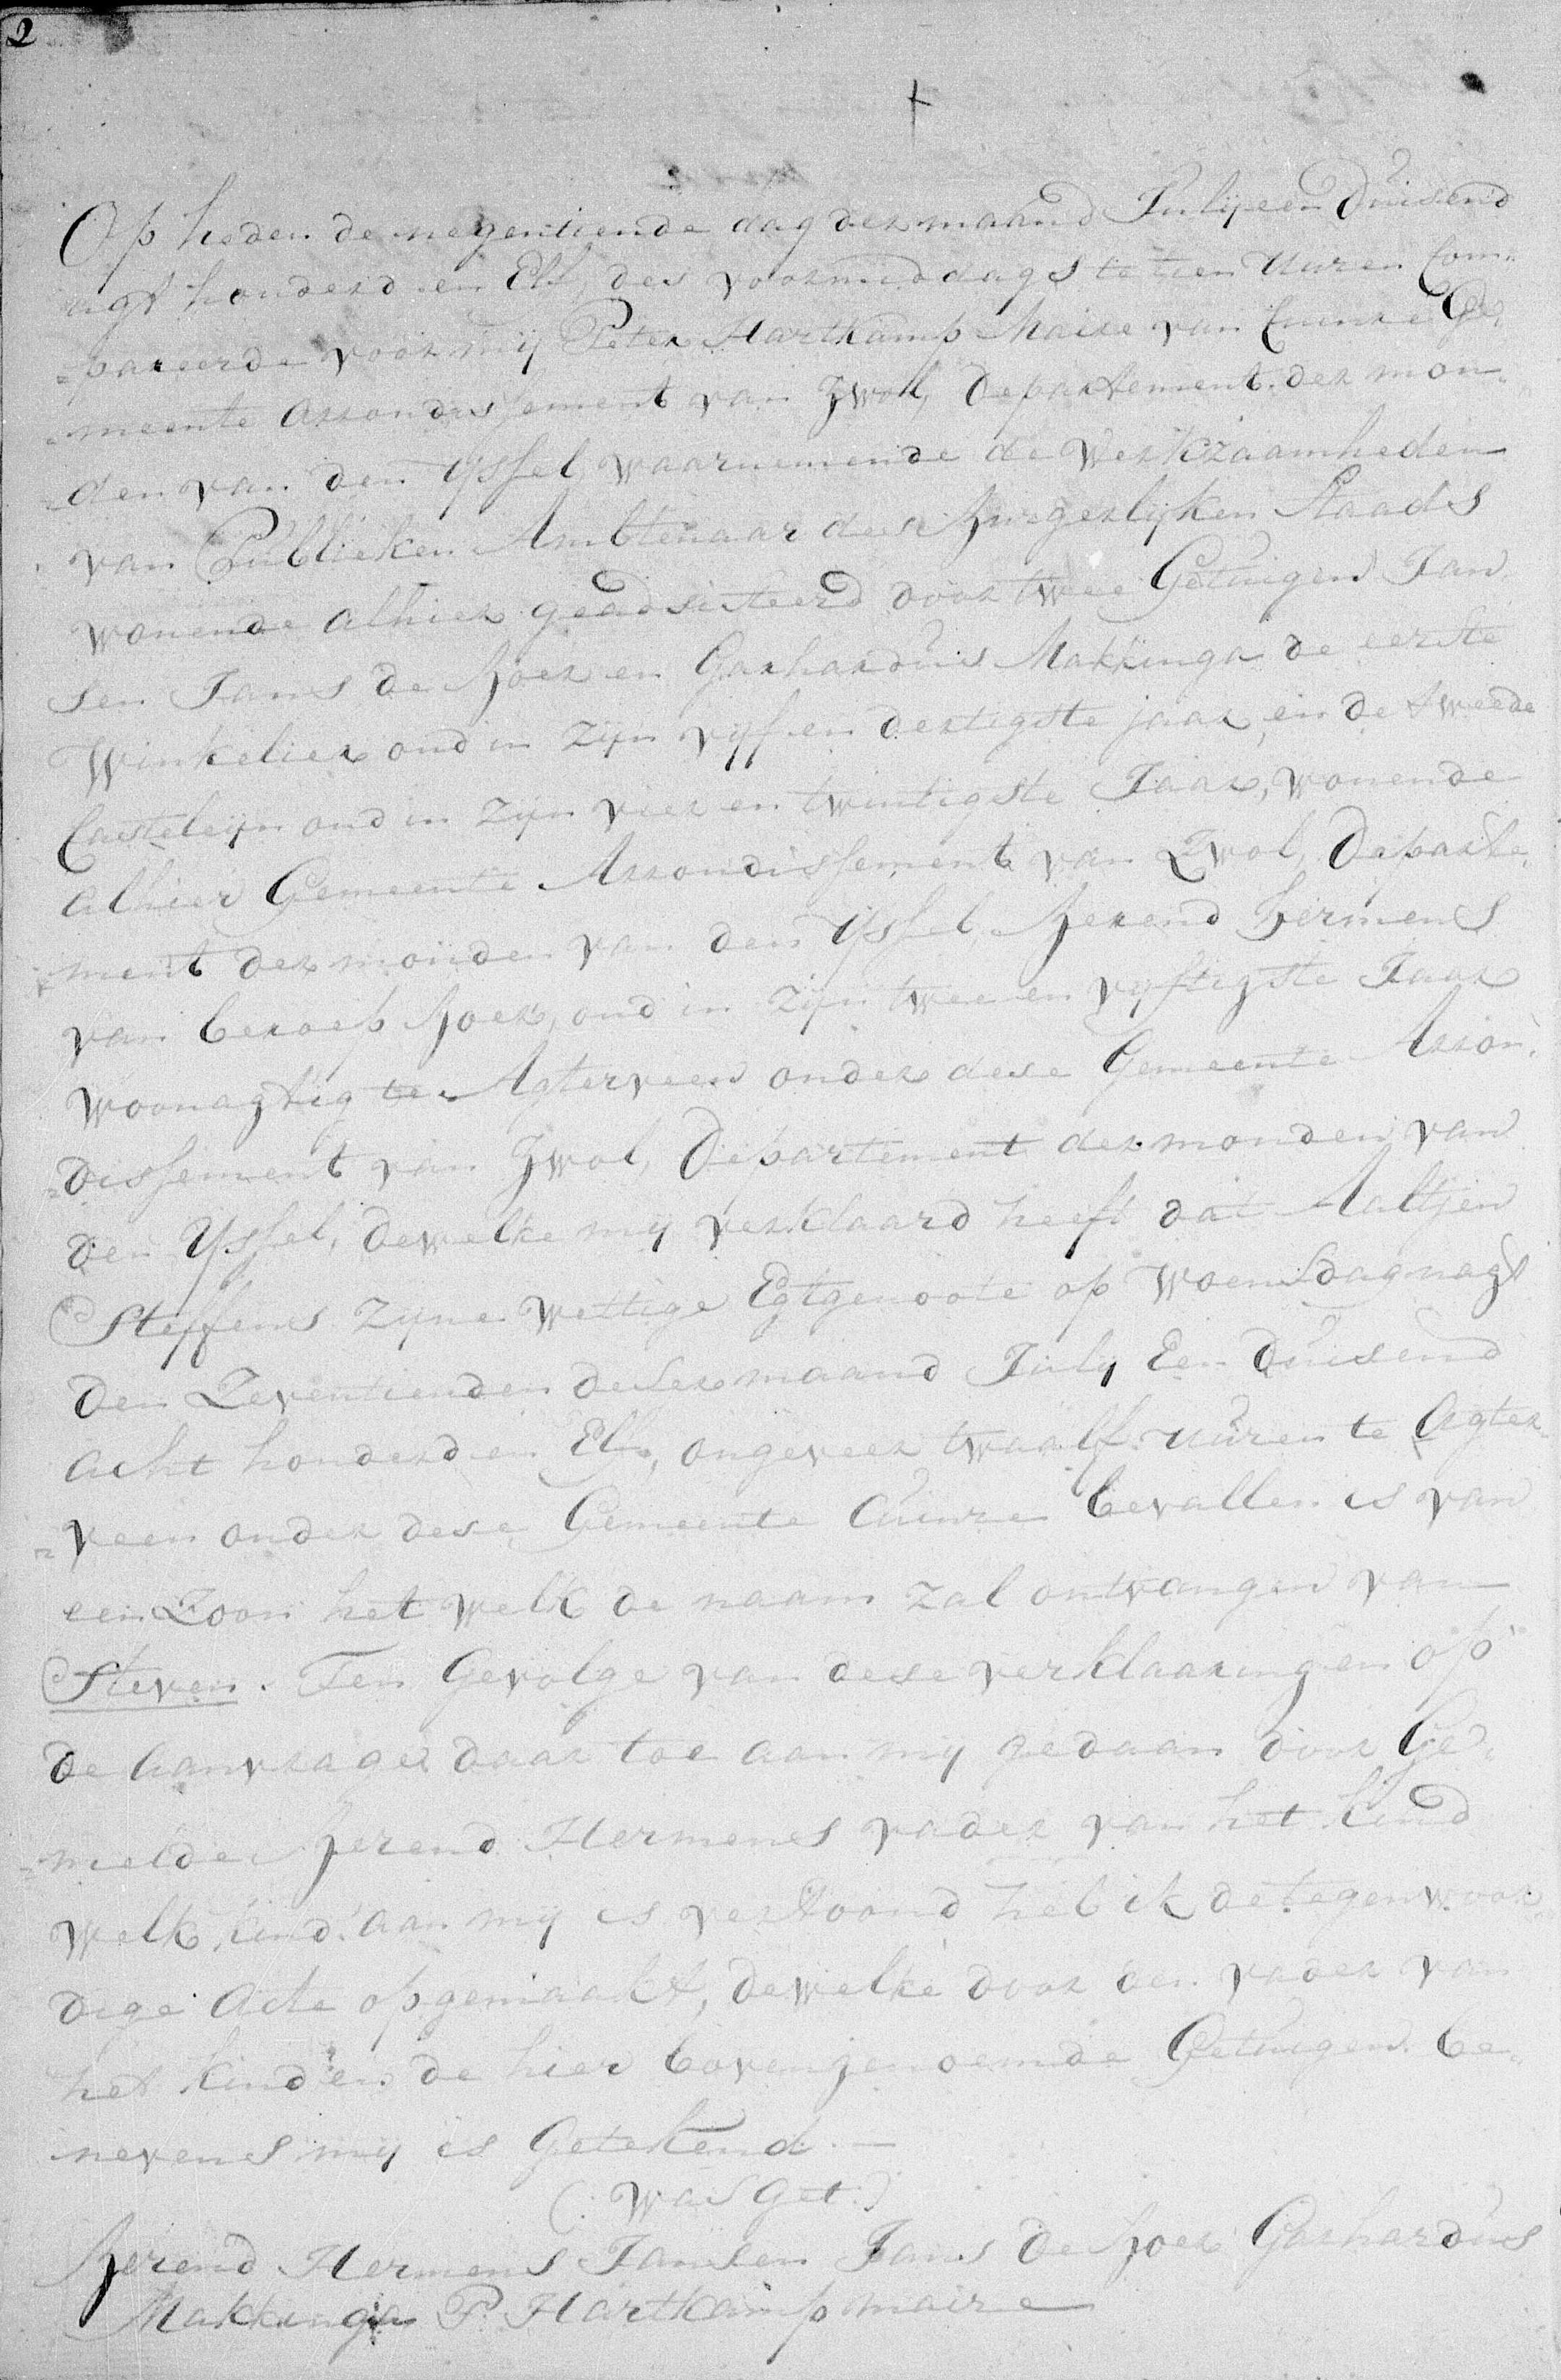 2
Op heden de negentiende dag der maand Julij een Duisend
agt honderd en Elf, des voormiddags te tien Uuren Com„
„pareerde voor mij Peter Hartkamp Maire van Cuinre Ge„
„meente Arrondissement van Zwol, Departement der mon„
„den van den Yssel, waarnemende de Werkzaamheden
van Publieken Ambtenaar des Burgerlijken Staads
wonende alhier geadsisteerd door twee Getuigen Jan
sen Jans de Boer en Garhardus Makkinga de eerste
Winkelier oud in zijn vijf en dertigste jaar, en de tweede
Casteleijn oud in zijn vier en twintigste Jaar, wonende
alhier Gemeente Arrondissement van Zwol, Departe„
„ment der monden van den Yssel, Berend Hermens
van beroep Boer, oud in zijn twee en vijftigste Jaar
woonagtig te Agterveen onder dese Gemeente Arron„
„dissement van Zwol, Departement der monden van
den Yssel, dewelke mij verklaard heeft dat Aaltjen
Steffens zijne wettige Egtgenoote op Woensdagnagt
den Zeventienden deser maand Julij Een Duisend
acht honderd en Elf, ongeveer twaalf uuren te Agter„
„veen onder dese Gemeente Cuinre bevallen is van
een Zoon het welk de naam zal ontvangen van
Steven. Ten Gevolge van dese verklaaringen op
de aanvrage daar toe aan mij gedaan door Ge„
„melde Berend Hermens vader van het kind
welk kind aan mij is vertoond heb ik de tegenwoor„
dige Acte opgemaakt, dewelke door den vader van
het kind en de hier bovengenoemde Getuigen be„
nevens mij is Getekend. —
(: was get:)
Berend Hermens Jansen Jans de Boer Garhardus
Makkinga P. Hartkamp maire